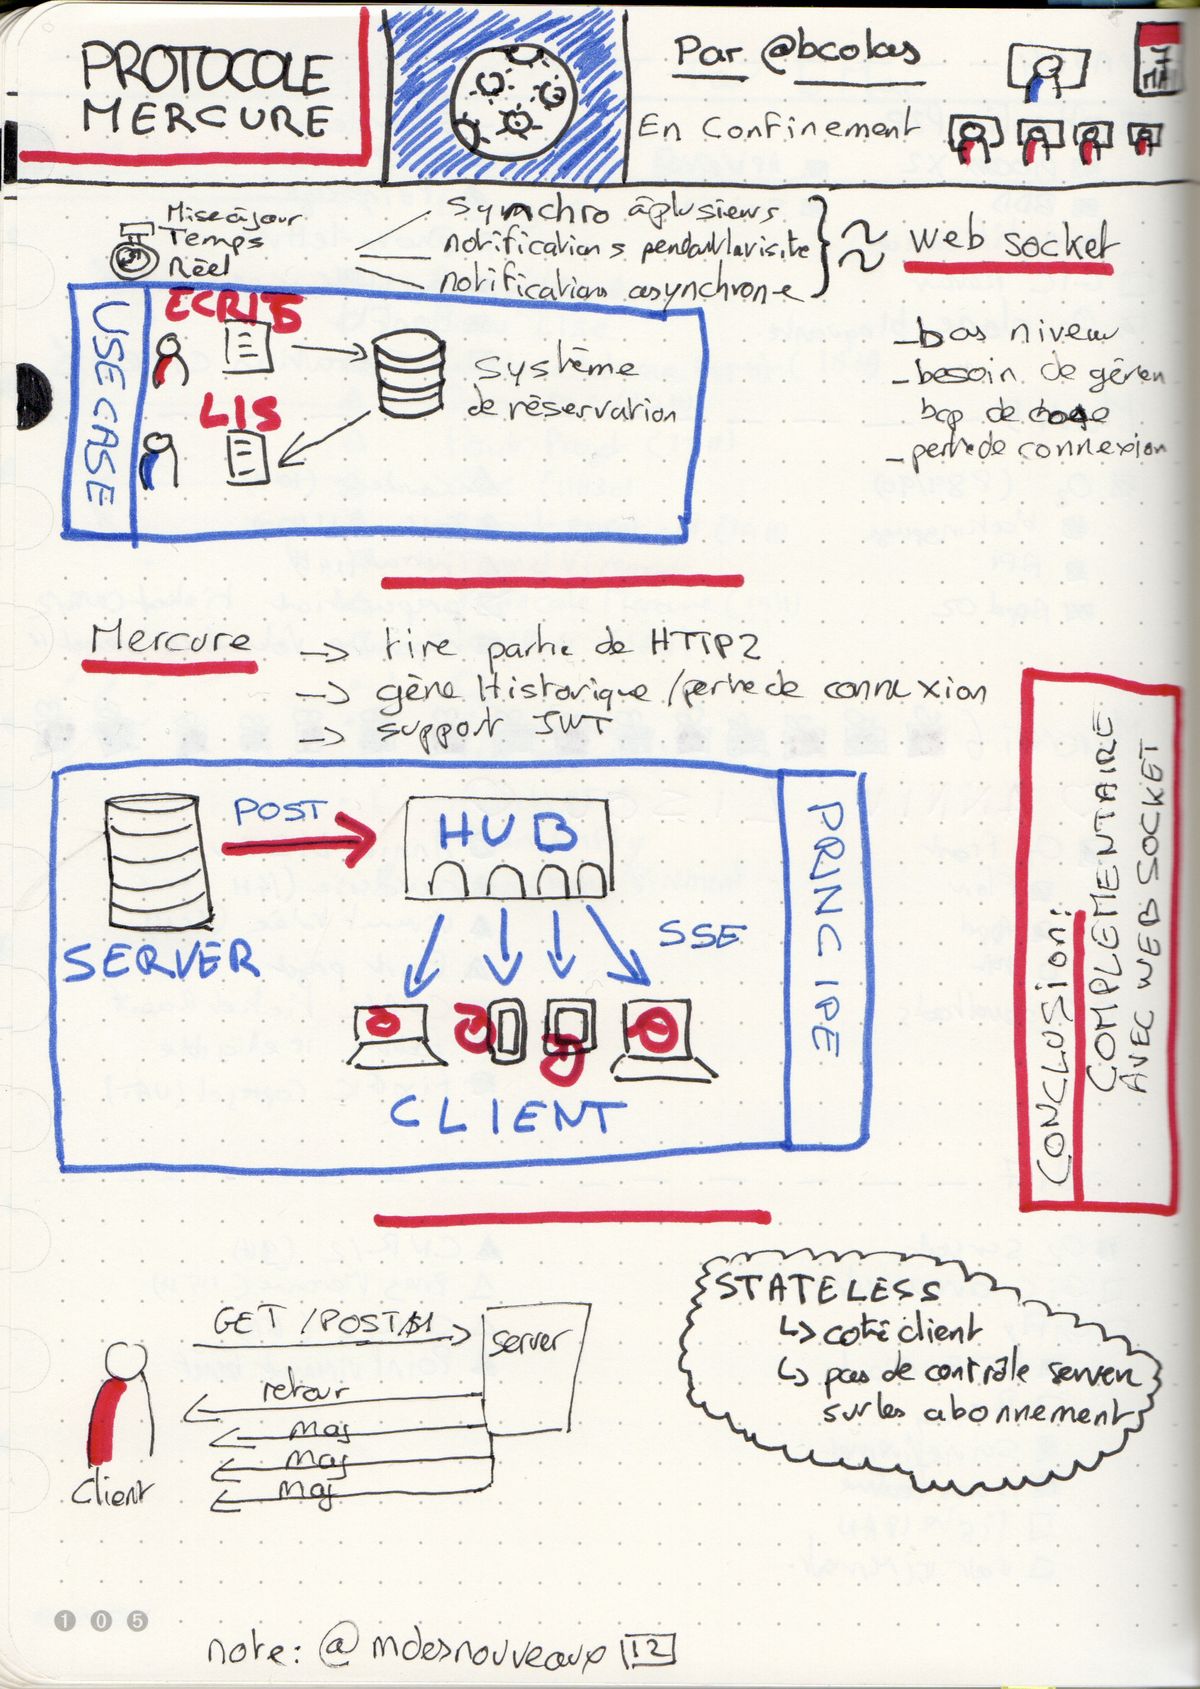 PROTOCOLE
MERCURE
Par @bcolas
En Confinement
7
MAI
Mise à jour
Temps
Réel
Synchro à plusieurs
notifications pendant la visite
notifications asynchrone
web socket
- bas niveau
- besoin de gérer
bcp de
- perte de connexion
USE CASE
ECRIS
LIS
Système
de réservation
Mercure
→ tire partie de HTTP2
→ gère Historique / perte de connexion
→ support JWT
SERVER
POST
HUB
SSE
CLIENT
PRINCIPE
CONCLUSION:
COMPLEMENTAIRE
AVEC WEB SOCKET
GET / POST
server
retour
maj
maj
maj
Client
STATELESS
↳ coté client
↳ pas de contrôle server
sur les abonnement
105
note: @mdesnouveaux 12